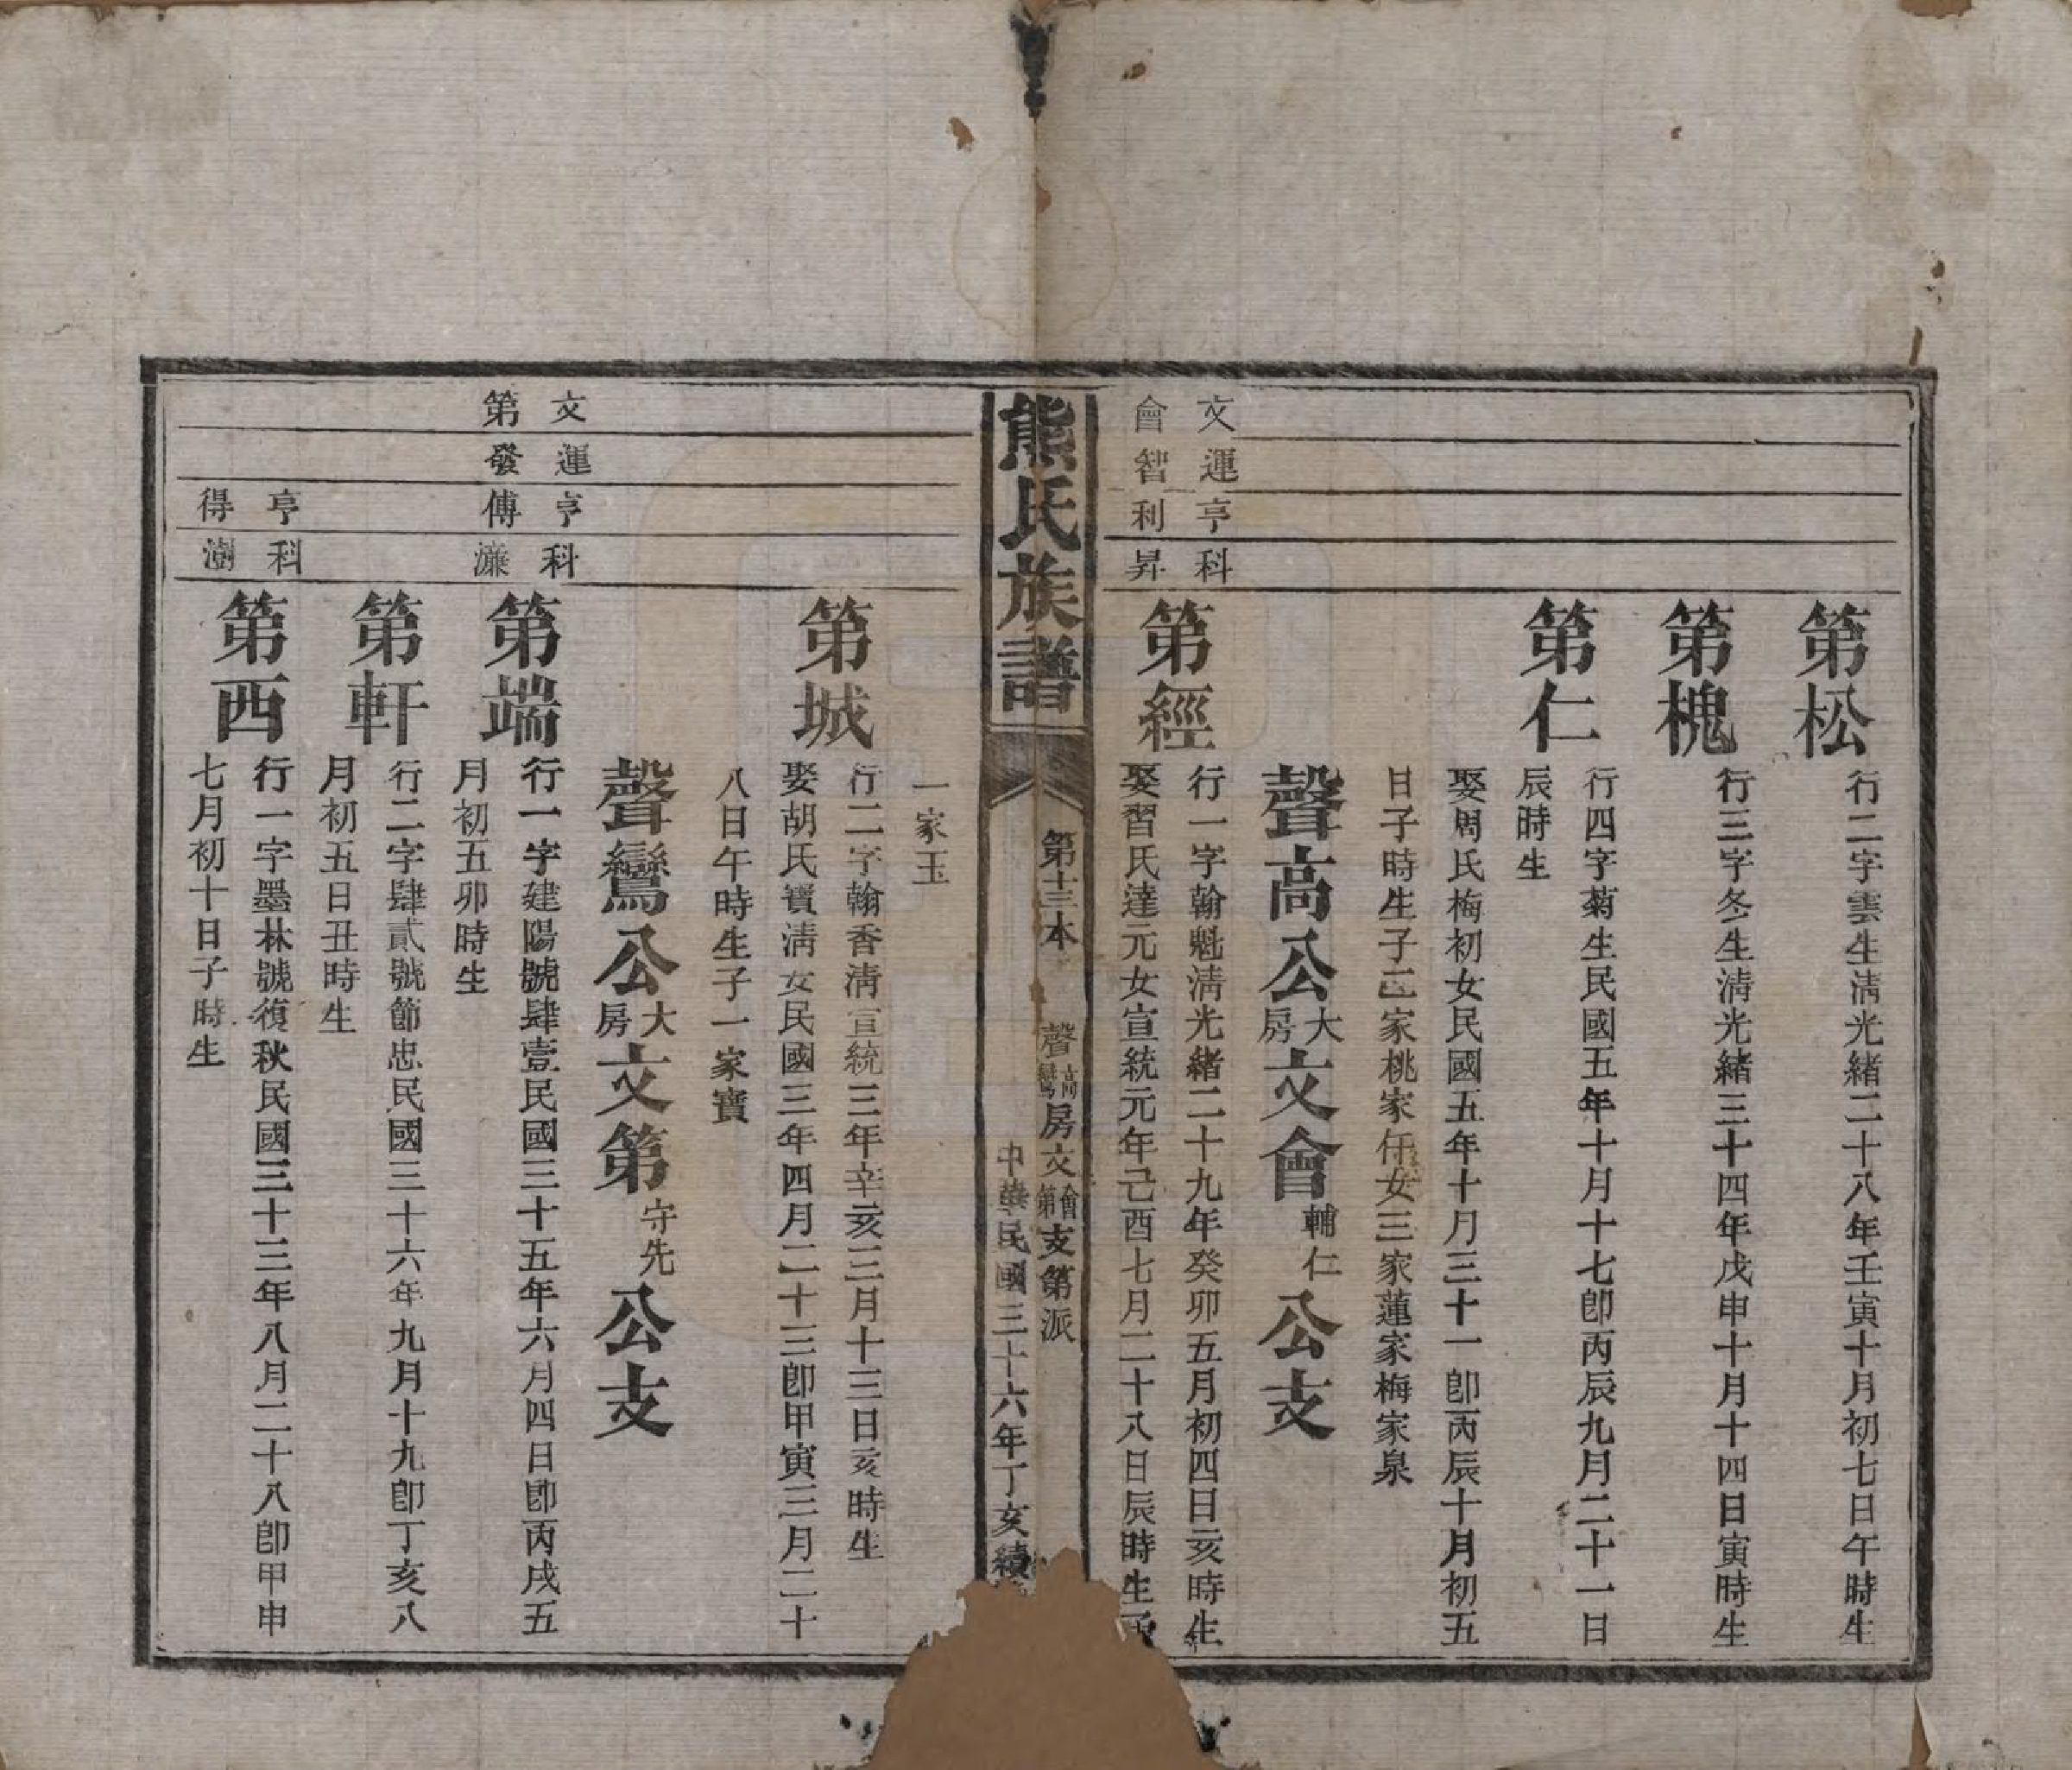 第松
行二字雲生淸光緒二十八年壬寅十月初七日午時生
第槐
行三字冬生淸光緒三十四年戊申十月十四日寅時生
第仁
行四字菊生民國五年十月十七卽丙辰九月二十一日
辰時生
娶周氏梅初女民國五年十月三十一卽丙辰十月初五
日子時生子二家桃家任女三家蓮家梅家泉
文運亨科
會智利昇
聲高公大房文會輔仁公支
第經
行一字翰魁淸光緒二十九年癸卯五月初四日亥時生
娶習氏達元女宣統元年己酉七月二十八日辰時生子
熊氏族譜
第十三本
聲高鸞房文會第支第派
中華民國三十六年丁亥續
一家玉
第城
行二字翰香淸宣統三年辛亥三月十三日亥時生
娶胡氏寶淸女民國三年四月二十三卽甲寅三月二十
八日午時生子一家寶
文運亨科
第發傳濂
聲鸞公大房文第守先公支
第端
行一字建陽號肆壹民國三十五年六月四日卽丙戌五
月初五卯時生
第軒
行二字肆貳號節忠民國三十六年九月十九卽丁亥八
月初五日丑時生
亨科
得澍
第西
行一字墨林號復秋民國三十三年八月二十八卽甲申
七月初十日子時生